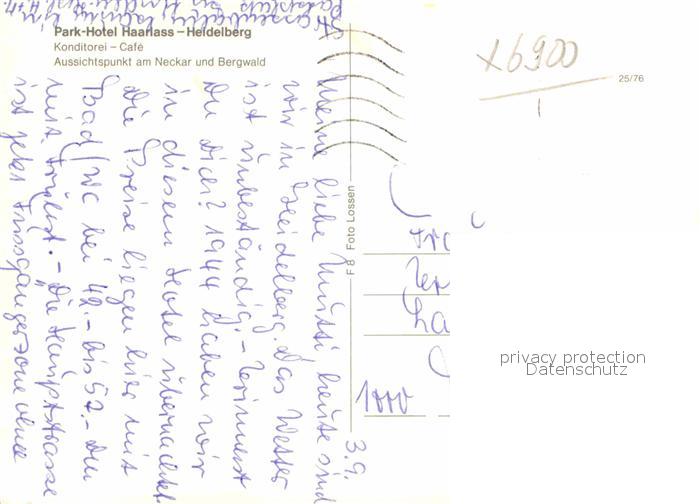 Park-Hotel Haarlass – Heidelberg
Konditorei – Café
Aussichtspunkt am Neckar und Bergwald
Meine liebe Mutti, heute sind
wir in Heidelberg. Das Wetter
ist unbeständig. – Erinnerst
Du Dich? 1944 haben wir
in diesem Hotel übernachtet
Die Preise liegen hier mit
Bad/WC bei 42.– bis 52.– DM
mit Frühst. – Die Hauptstrasse
ist jetzt Fussgängerzone ohne
3.9.
F 8 Foto Lossen
x6900
25/76
1000
privacy protection
Datenschutz